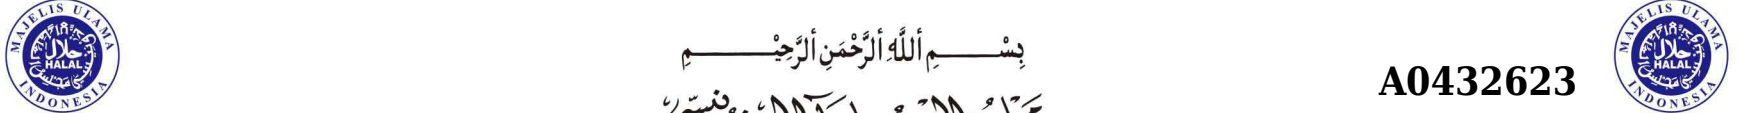 MAJELIS ULAMA INDONESIA
حلال
HALAL
بِسْــــــمِ أللَّهِ ألرَّحْمَنِ ألرَّحِيْــــــمِ
A0432623
MAJELIS ULAMA INDONESIA
حلال
HALAL